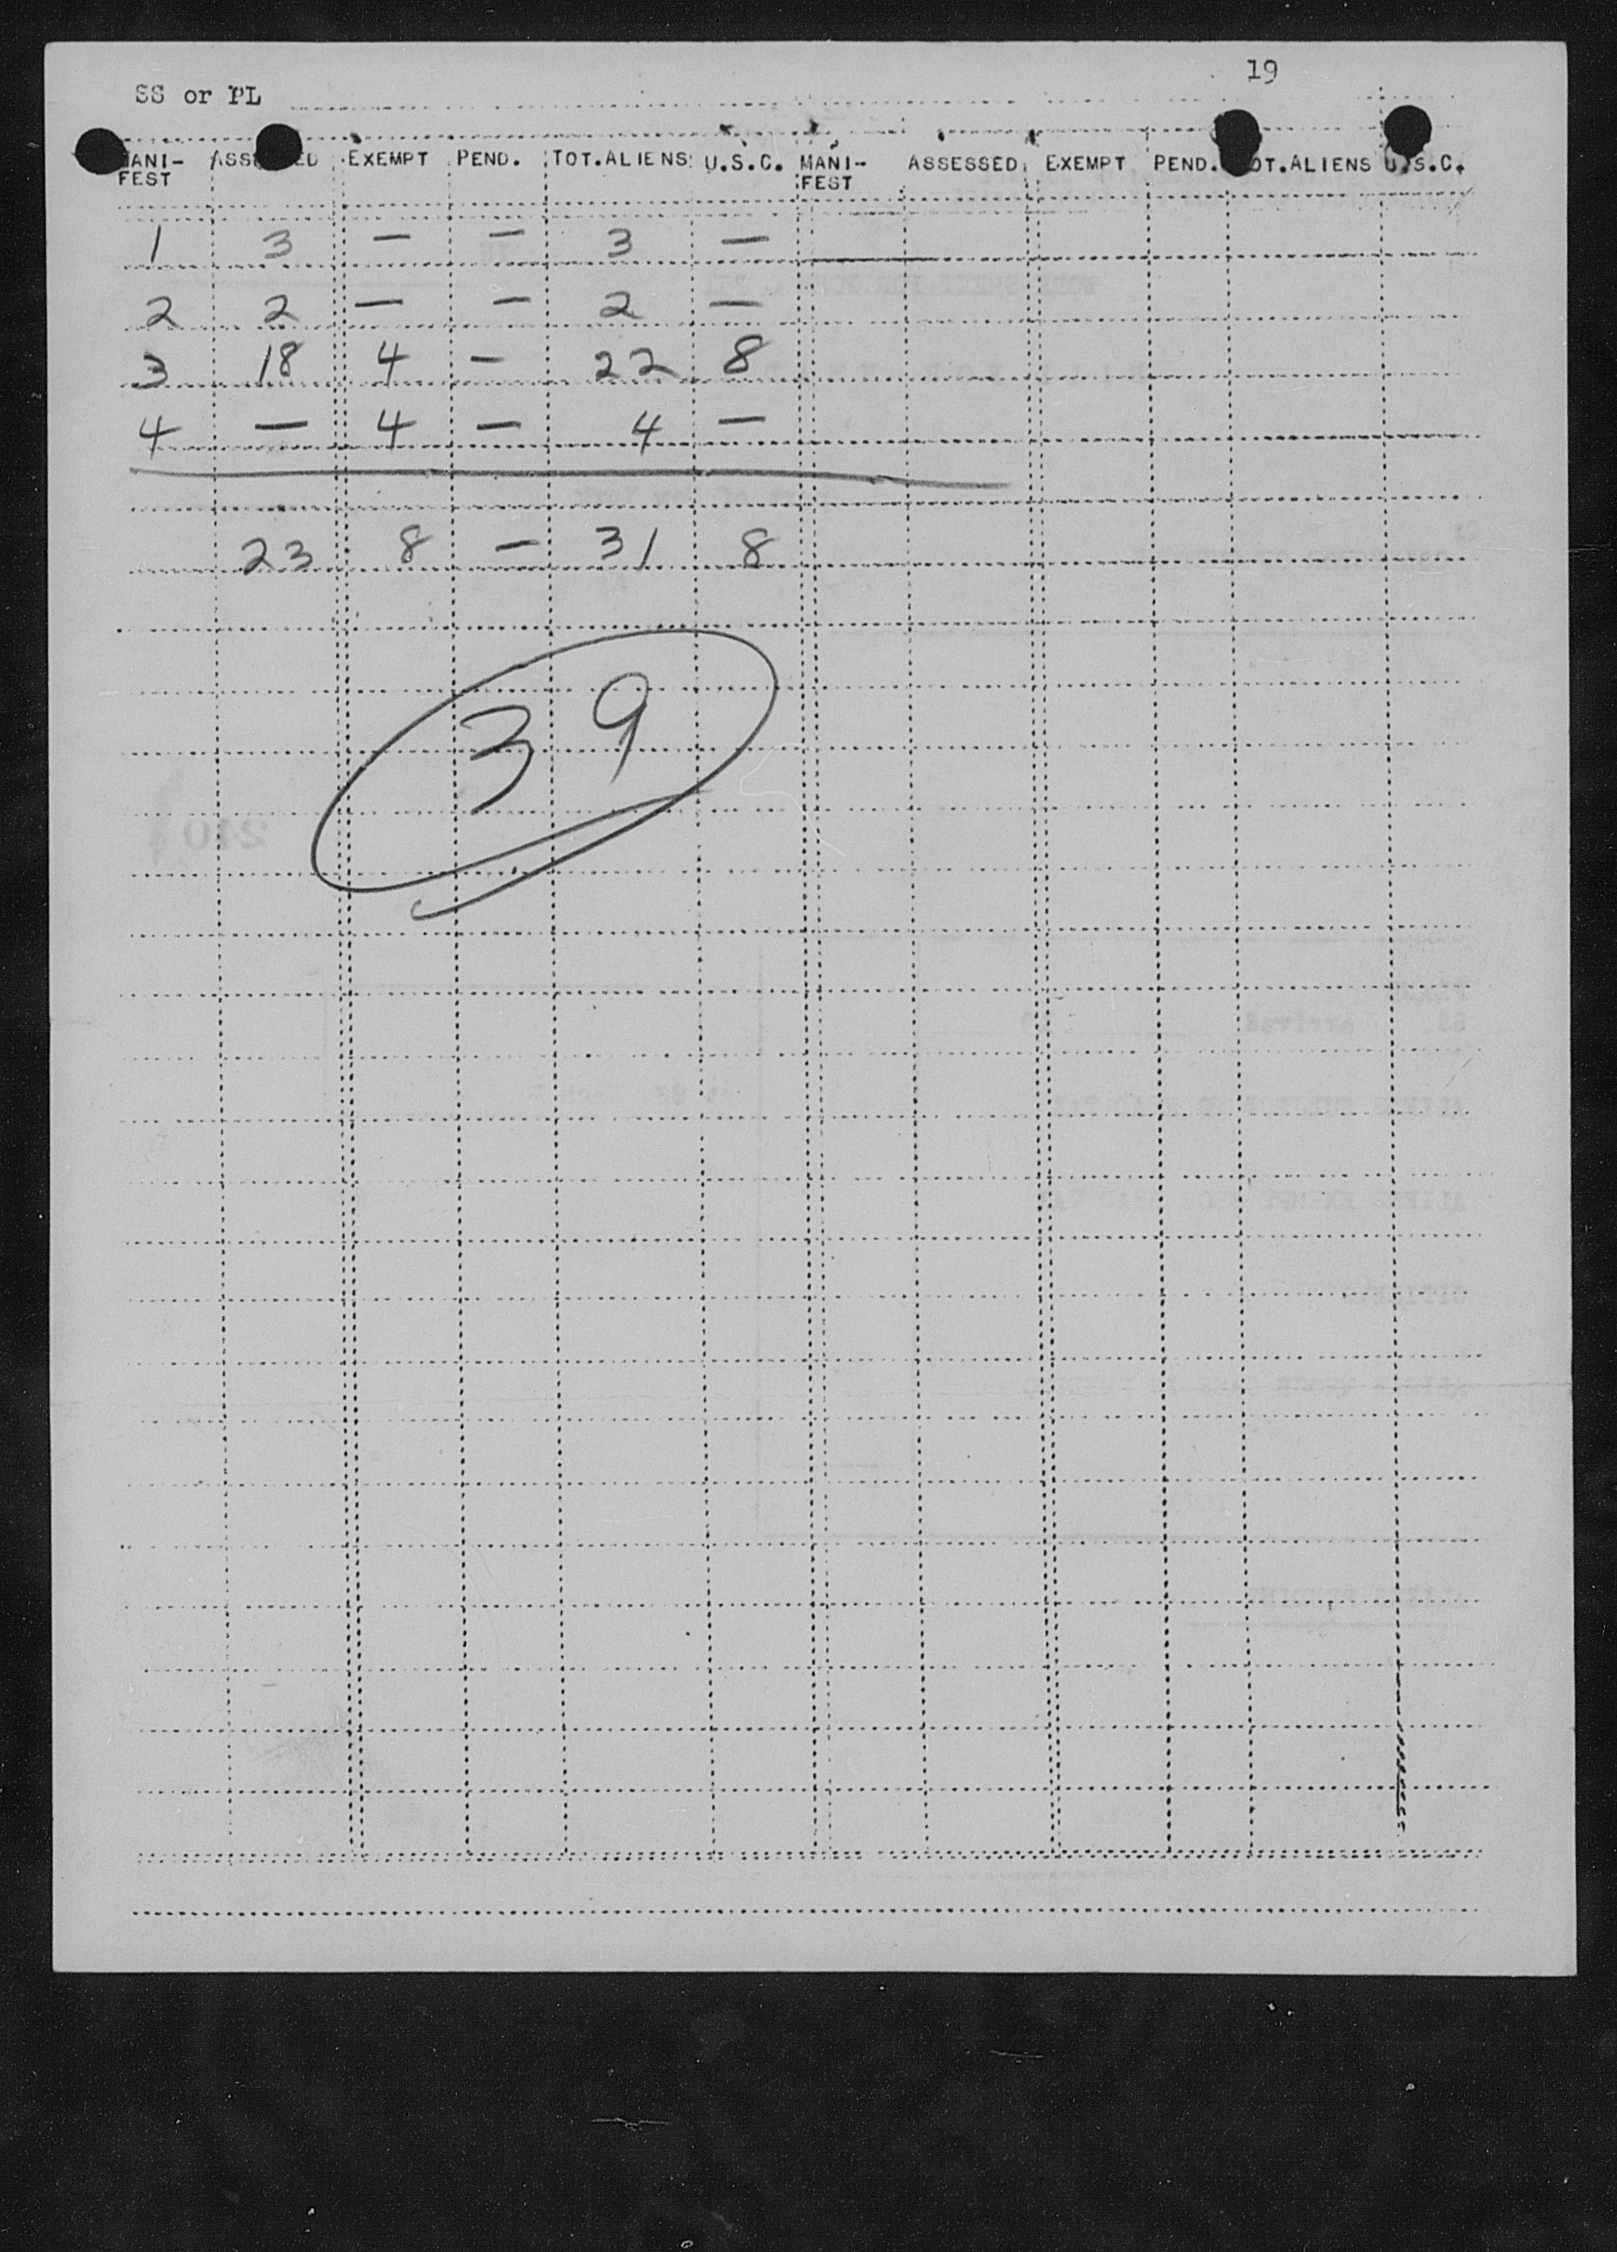 19
SS or PL
MANI-FEST ASSESSED EXEMPT PEND. TOT.ALIENS U.S.C. MANI-FEST ASSESSED EXEMPT PEND. TOT.ALIENS U.S.C.
1 3 — — 3 —
2 2 — — 2 —
3 18 4 — 22 8
4 — 4 — 4 —
23 8 — 31 8
39